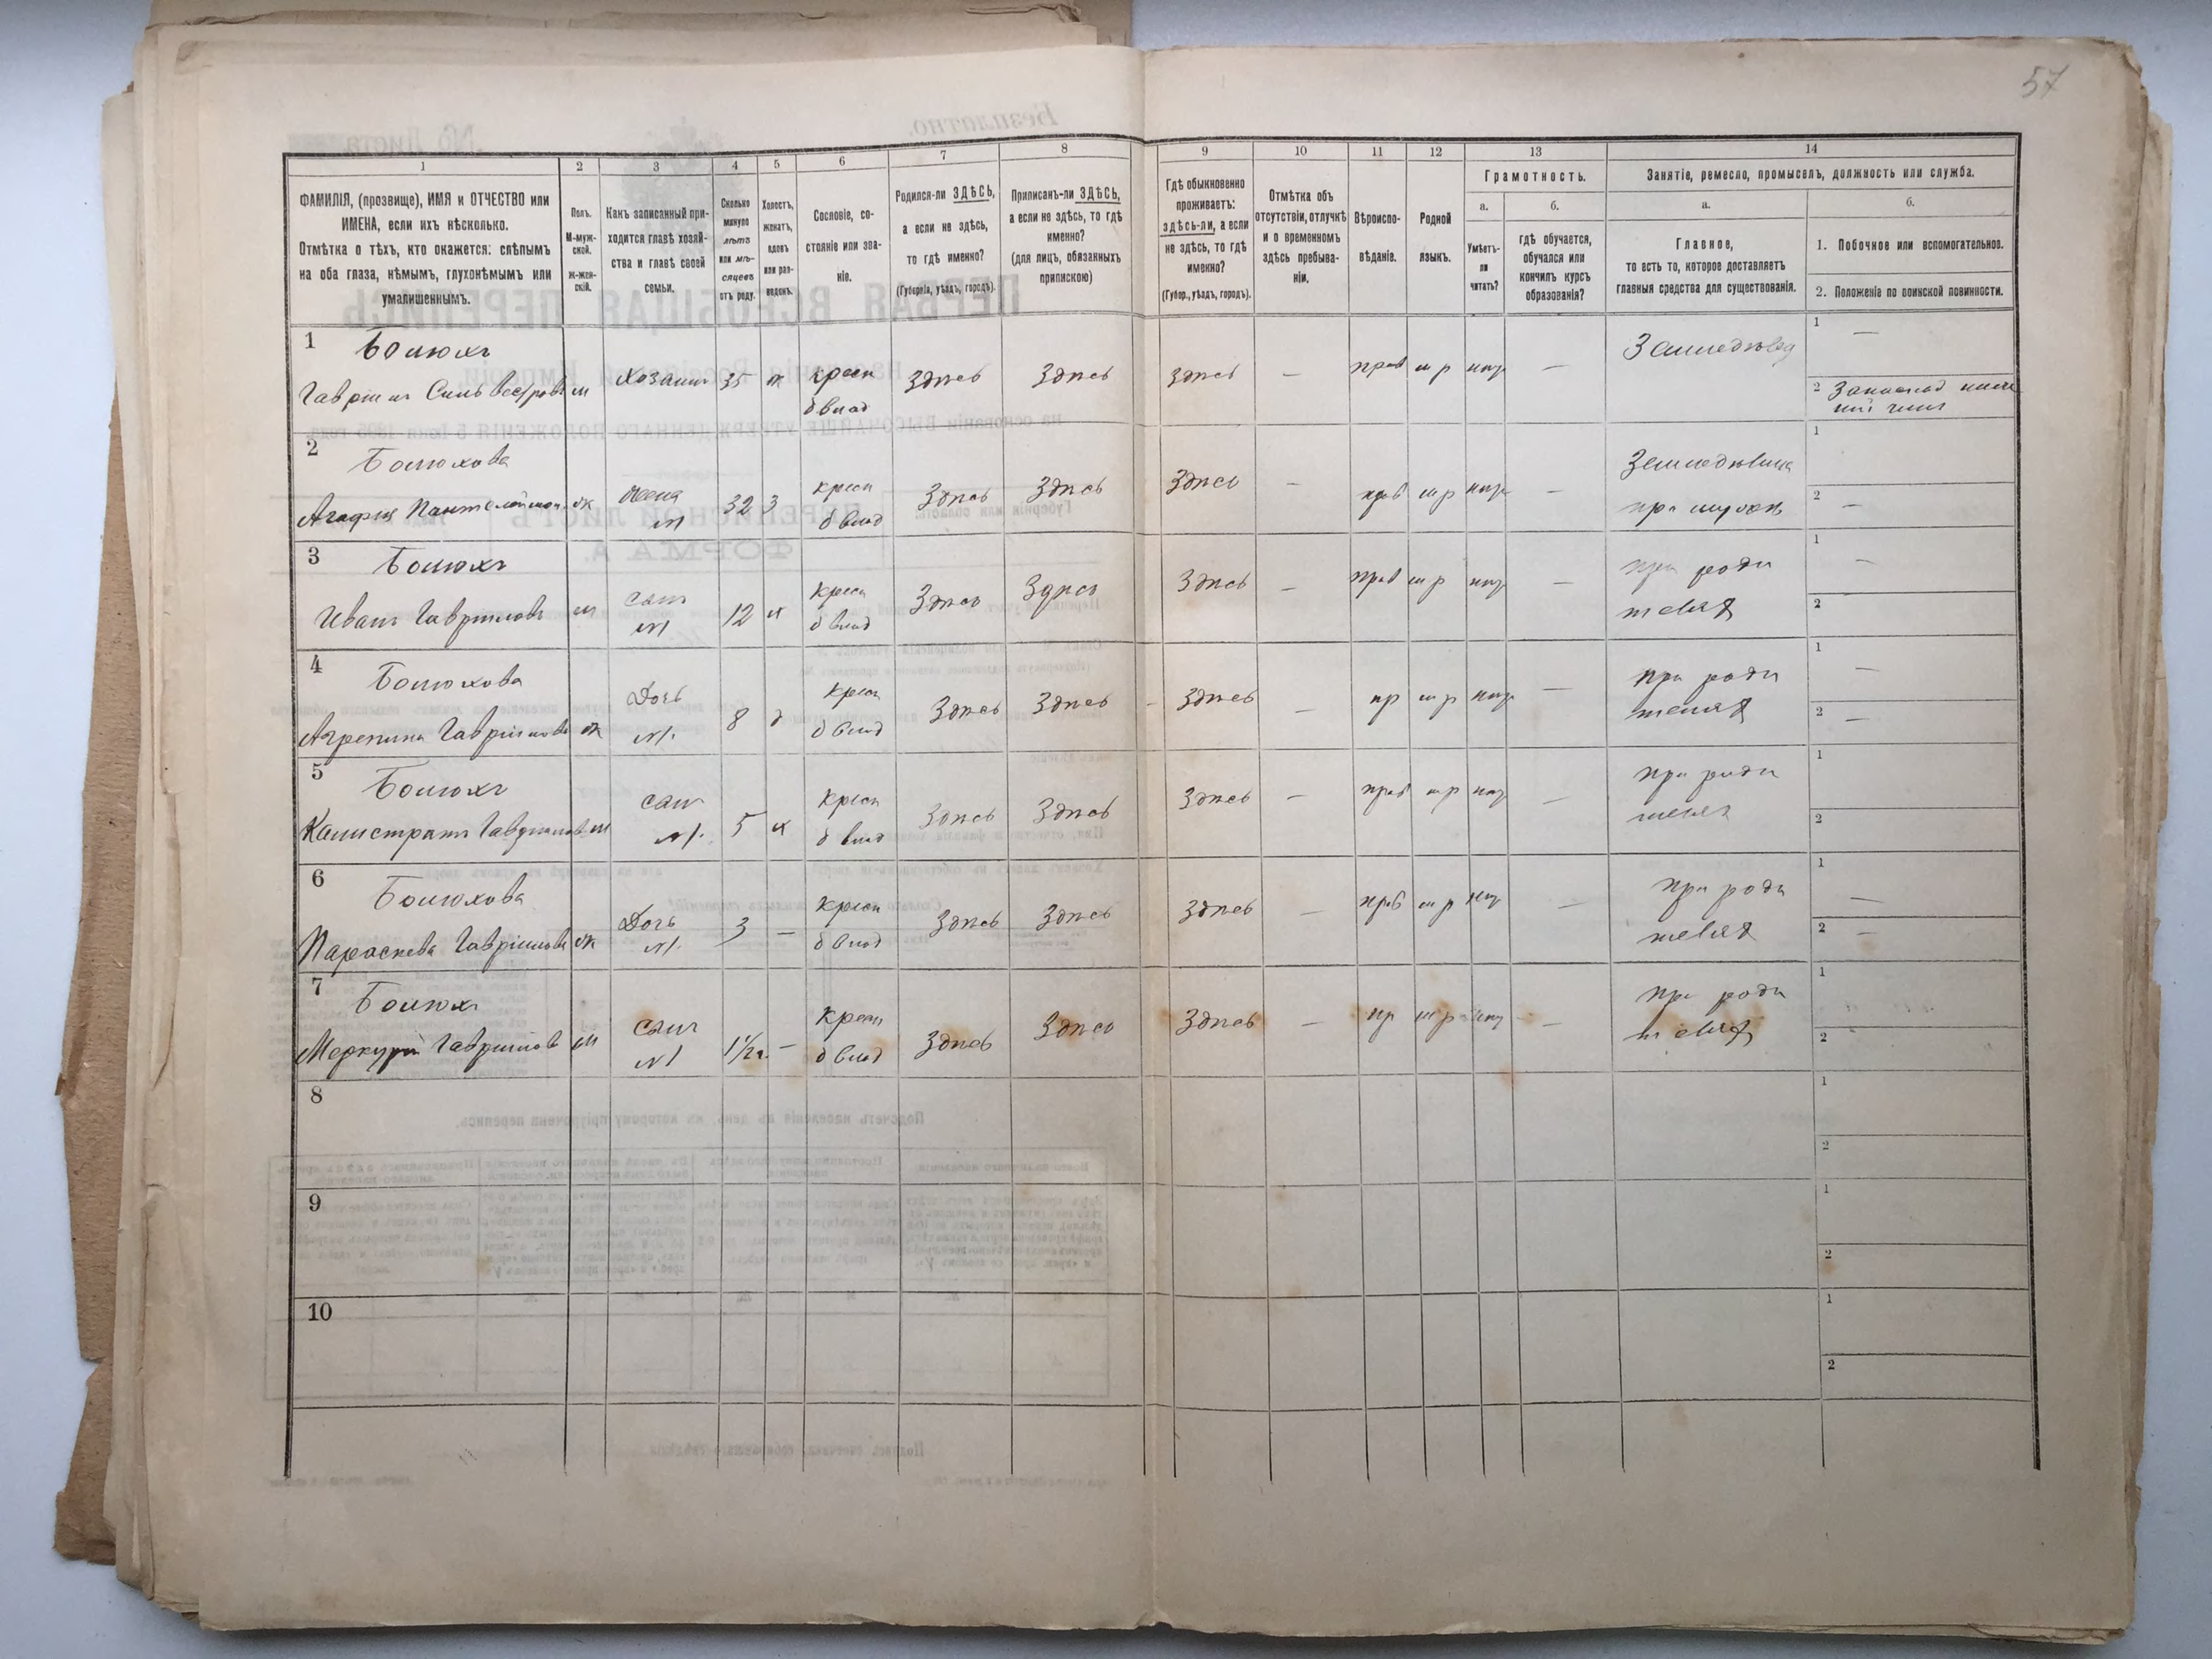 57
1
2
3
4
5
6
7
8
9
10
11
12
13
14
ФАМИЛІЯ, (прозвище), ИМЯ и ОТЧЕСТВО или
ИМЕНА, если ихъ нѣсколько.
Отмѣтка о тѣхъ, кто окажется: слѣпымъ
на оба глаза, нѣмымъ, глухонѣмымъ или
умалишеннымъ.
Полъ.
М-муж-
ской.
Ж-жен-
скій.
Какъ записанный при-
ходится главѣ хозяй-
ства и главѣ своей
семьи.
Сколько
минуло
лѣтъ
или мѣ-
сяцевъ
отъ роду.
Холостъ,
женатъ,
вдовъ
или раз-
веденъ.
Сословіе, со-
стояніе или зва-
ніе.
Родился-ли ЗДѢСЬ,
а если не здѣсь,
то гдѣ именно?
(Губернія, уѣздъ, городъ).
Приписанъ-ли ЗДѢСЬ,
а если не здѣсь, то гдѣ
именно?
(для лицъ, обязанныхъ
припискою)
Гдѣ обыкновенно
проживаетъ:
здѣсь-ли, а если
не здѣсь, то гдѣ
именно?
(Губер., уѣздъ, городъ).
Отмѣтка объ
отсутствіи, отлучкѣ
и о временномъ
здѣсь пребыва-
ніи.
Вѣроиспо-
вѣданіе.
Родной
языкъ.
Грамотность.
а.
Умѣетъ-
ли
читать?
б.
гдѣ обучается,
обучался или
кончилъ курсъ
образованія?
Занятіе, ремесло, промыселъ, должность или служба.
а.
Главное,
то есть то, которое доставляетъ
главныя средства для существованія.
б.
1. Побочное или вспомогательное.
2. Положеніе по воинской повинности.
1 Болюхъ
Гавріилъ Сильвестровъ м Хозяинъ 35 ж крест здѣсь здѣсь здѣсь — прав м р — 1 —
б влад
2
2 Болюхова
Агафія Пантелеймон ж жена 32 з крест здѣсь здѣсь здѣсь — прав м р — 1
№1 б влад
2 —
3 Болюхъ
Иванъ Гавріиловъ м сынъ 12 х крест здѣсь здѣсь здѣсь — прав м р — при роди 1 —
№1 б влад теляхъ 2
4 Болюхова
Агрепина Гавріилова ж Дочь 8 д крест здѣсь здѣсь здѣсь — пр м р — при роди 1 —
№1. б влад теляхъ 2 —
5 Болюхъ
Калистратъ Гавріиловъ м сынъ 5 х крест здѣсь здѣсь здѣсь — прав м р — при роди 1
№1. б влад теляхъ 2
6 Болюхова
Параскева Гавріилова ж Дочь 3 — крест здѣсь здѣсь здѣсь — прав м р — при роди 1 —
№1. б влад теляхъ 2 —
7 Болюхъ
Меркурій Гавріиловъ м сынъ 1½ г. — крест здѣсь здѣсь здѣсь — пр м р — при роди 1
№1 б влад теляхъ 2
8 1
2
9 1
2
10 1
2